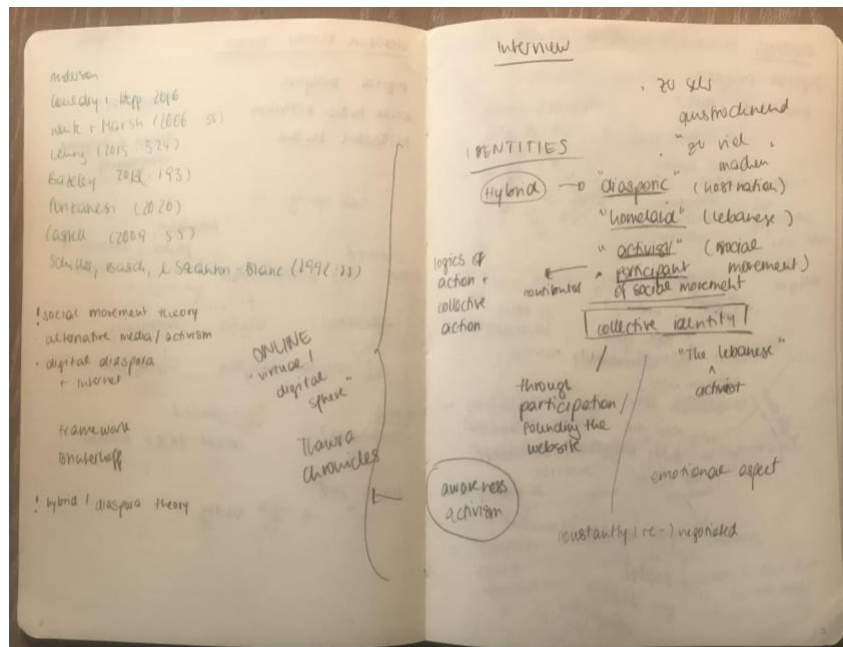 Couldry & Hepp 2016
& Marsh (2006
Leung (2015 324)
2014 193)
Ponzanesi (2020)
(2009 55)
Schiller, Basch, & Szanton-Blanc (1992
! social movement theory
- alternative media / activism
· digital diaspora
+ internet
Framework
Brinkerhoff
! hybrid / diaspora theory
ONLINE
"virtual /
digital
sphere"
Thawra
chronicles
Interview
· zu sehr
"zu viel
machen
IDENTITIES
Hybrid → "diasporic" (host nation)
"homeland" (lebanese)
"activist" (social
movement)
participant
of social movement
contributor
logics of
action +
collective
action
collective identity
"The lebanese"
^
activist
through
participation /
founding the
website
emotional aspect
awareness
activism
constantly (re-) negotiated